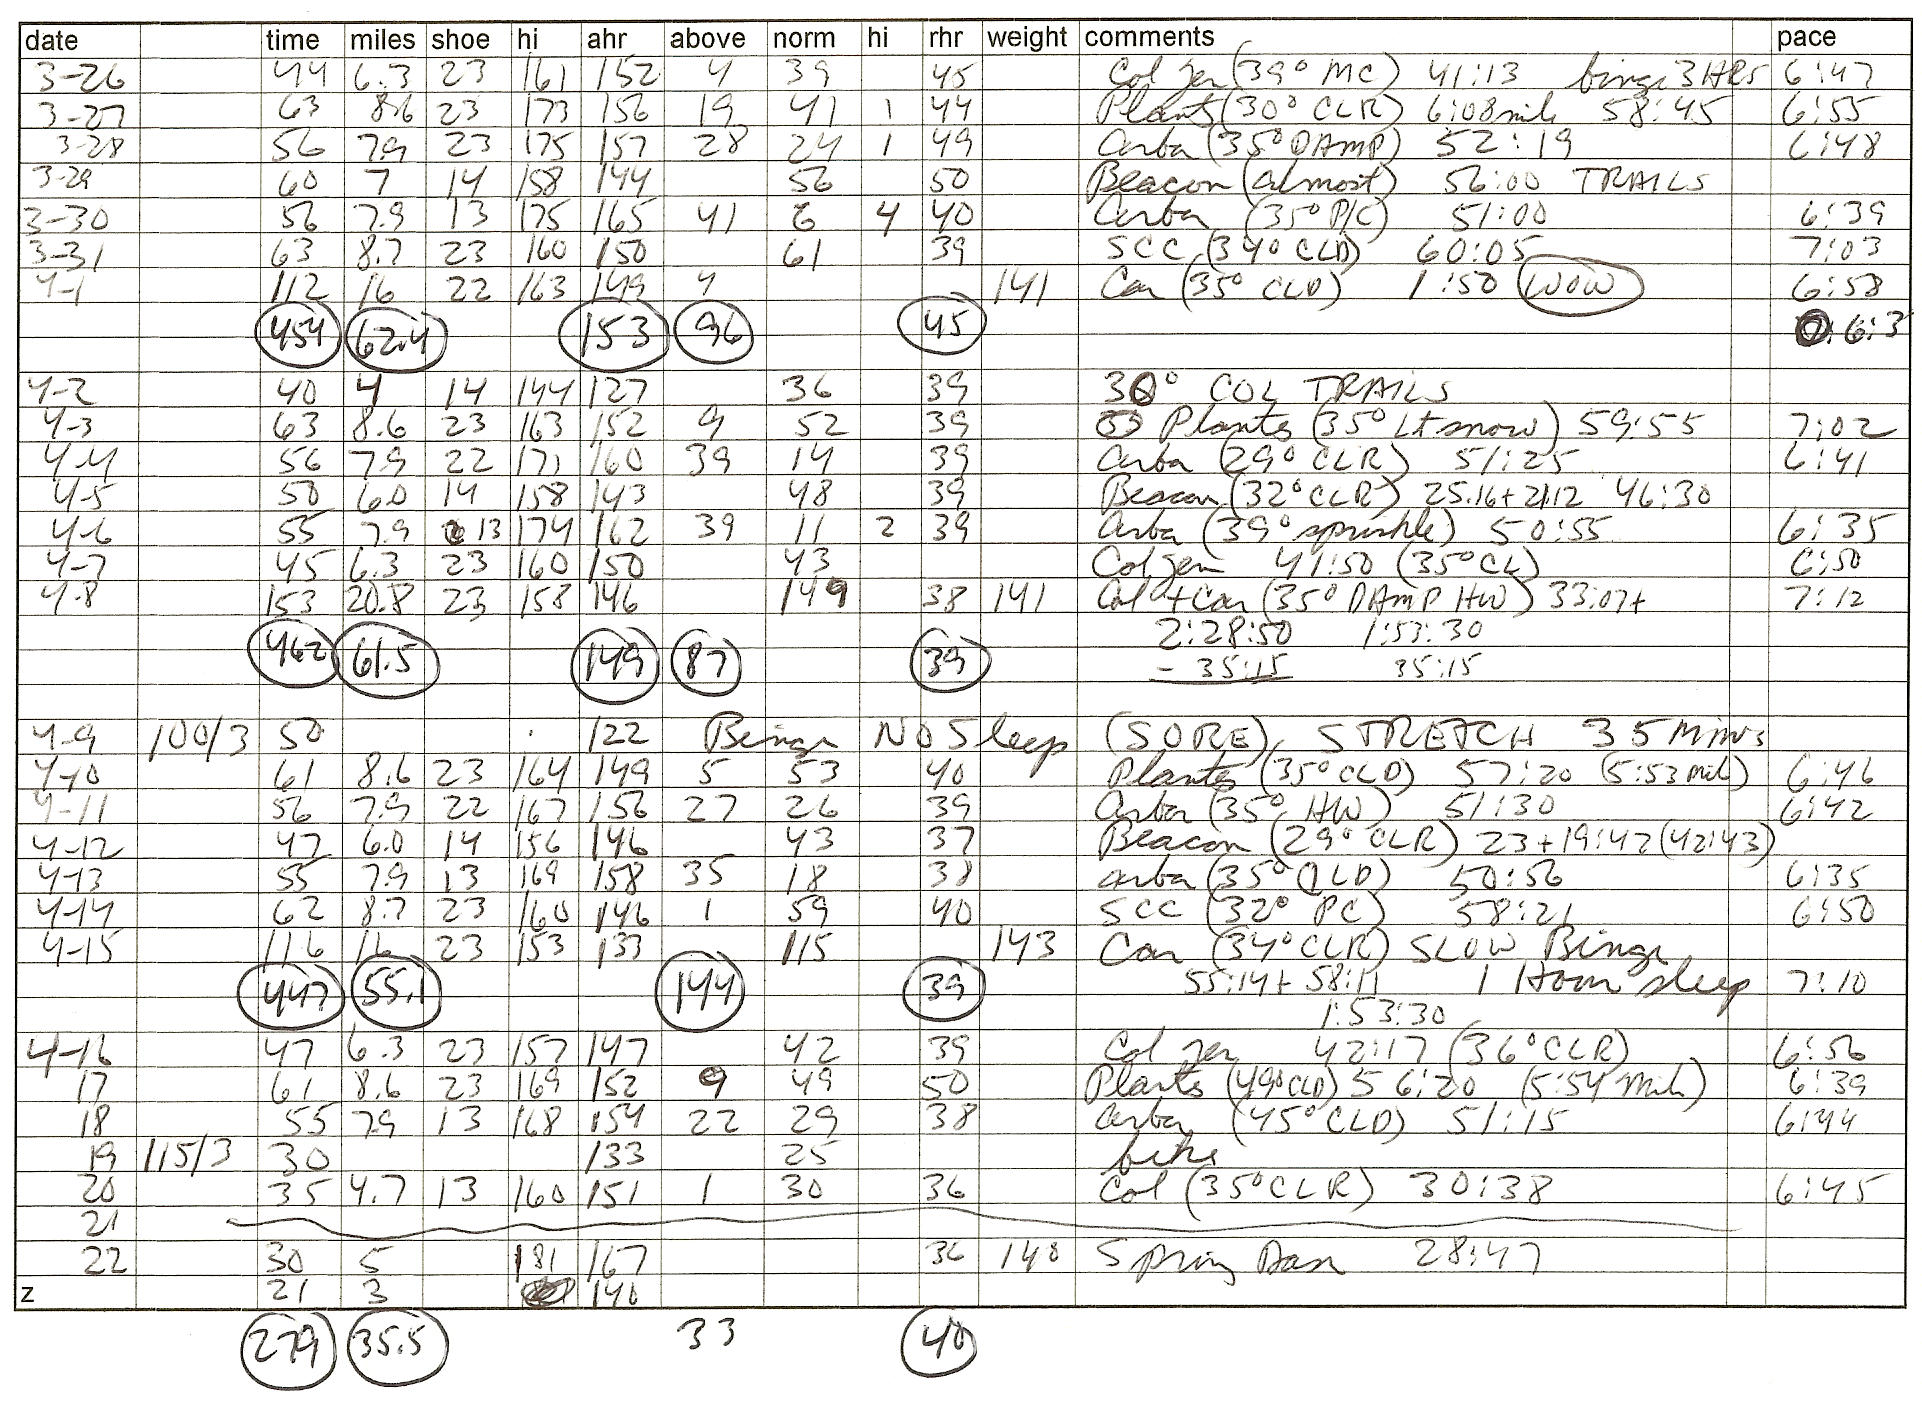 date time miles shoe hi ahr above norm hi rhr weight comments pace
3-26 44 6.3 23 161 152 4 39 45 Col Jen (39° MC) 41:13 binge 3 HRS 6:47
3-27 63 8.6 23 173 156 19 41 1 44 Plants (30° CLR) 6:08 mile 58:45 6:55
3-28 56 7.9 23 175 157 28 24 1 49 Arba (35° DAMP) 52:19 6:48
3-29 60 7 14 158 144 56 50 Beacon (almost) 56:00 TRAILS
3-30 56 7.9 13 175 165 41 6 4 40 Arba (35° P/C) 51:00 6:39
3-31 63 8.7 23 160 150 61 39 SCC (34° CLD) 60:05 7:03
4-1 112 16 22 163 149 4 141 Car (35° CLD) 1:50 WOW 6:58
454 62.4 153 96 45 6:3
4-2 40 4 14 144 127 36 39 30° COL TRAILS
4-3 63 8.6 23 163 152 9 52 39 Plants (35° Lt snow) 59:55 7:02
4-4 56 7.9 22 171 160 39 14 39 Arba (29° CLR) 51:25 6:41
4-5 50 6.0 14 158 143 48 39 Beacon (32° CLR) 25.16+21.12 46:30
4-6 55 7.9 13 174 162 39 11 2 39 Arba (39° sprinkle) 50:55 6:35
4-7 45 6.3 23 160 150 43 Col Jen 41:50 (35° CL) 6:50
4-8 153 20.8 23 158 146 149 38 141 Col + Car (35° DAMP HW) 33:07+ 7:12
2:28:50 1:53:30
462 61.5 149 87 39 - 35:15 35:15
4-9 100/3 50 122 Binge NO Sleep (SORE) STRETCH 35 Mins
4-10 61 8.6 23 164 149 5 53 40 Plants (35° CLD) 57:20 (5:53 mile) 6:46
4-11 56 7.9 22 167 156 27 26 39 Arba (35° HW) 51:30 6:42
4-12 47 6.0 14 156 146 43 37 Beacon (29° CLR) 23+19:42 (42:43)
4-13 55 7.9 13 169 158 35 18 38 Arba (35° CLD) 50:56 6:35
4-14 62 8.7 23 160 146 1 59 40 SCC (32° PC) 58:21 6:50
4-15 116 16 23 153 133 115 143 Car (34° CLR) SLOW Binge
447 55.1 144 39 55:14+ 58:11 1 Hour sleep 7:10
1:53:30
4-16 47 6.3 23 157 147 42 39 Col Jen 42:17 (36° CLR) 6:56
17 61 8.6 23 169 152 9 49 50 Plants (49° CLD) 56:20 (5:54 Mile) 6:39
18 55 7.9 13 168 154 22 29 38 Arba (45° CLD) 51:15 6:44
19 115/3 30 133 25 bike
20 35 4.7 13 160 151 1 30 36 Col (35° CLR) 30:38 6:45
21
22 30 5 181 167 36 140 Spring Dash 28:47
z 21 3 140
279 35.5 33 40